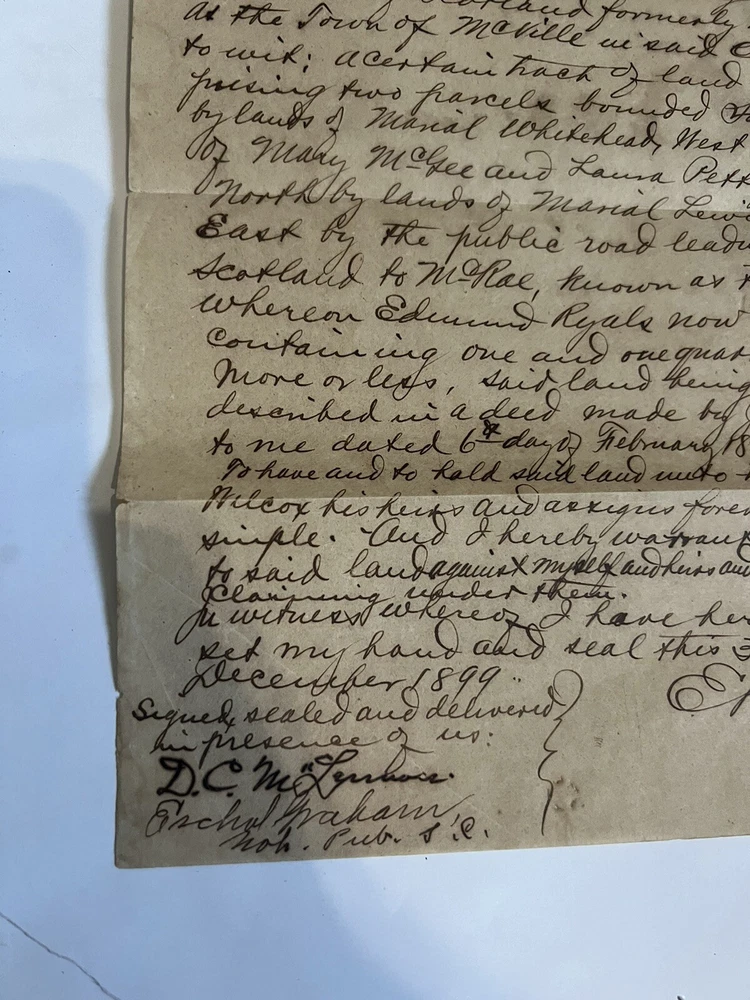 Scotland formerly
as the Town of McVille in said
to wit: a certain tract of land
prising two parcels bounded
by lands of Marial Whitehead, West
of Mary McGee and Laura Pett
North by lands of Marial Lew
East by the public road lead
Scotland to McRae, known as
whereon Edmund Ryals now
containing one and one quar
more or less, said land being
described in a deed made by
to me dated 6th day of February 18
To have and to hold said land unto
Wilcox his heirs and assigns forev
simple. And I hereby warrant
to said land against myself and heirs and
claiming under them.
In witness whereof I have her
set my hand and seal this 3
December 1899
Signed, sealed and delivered
in presence of us:
D.C. McLennon.
Eschol Graham,
Not. Pub. T.C.